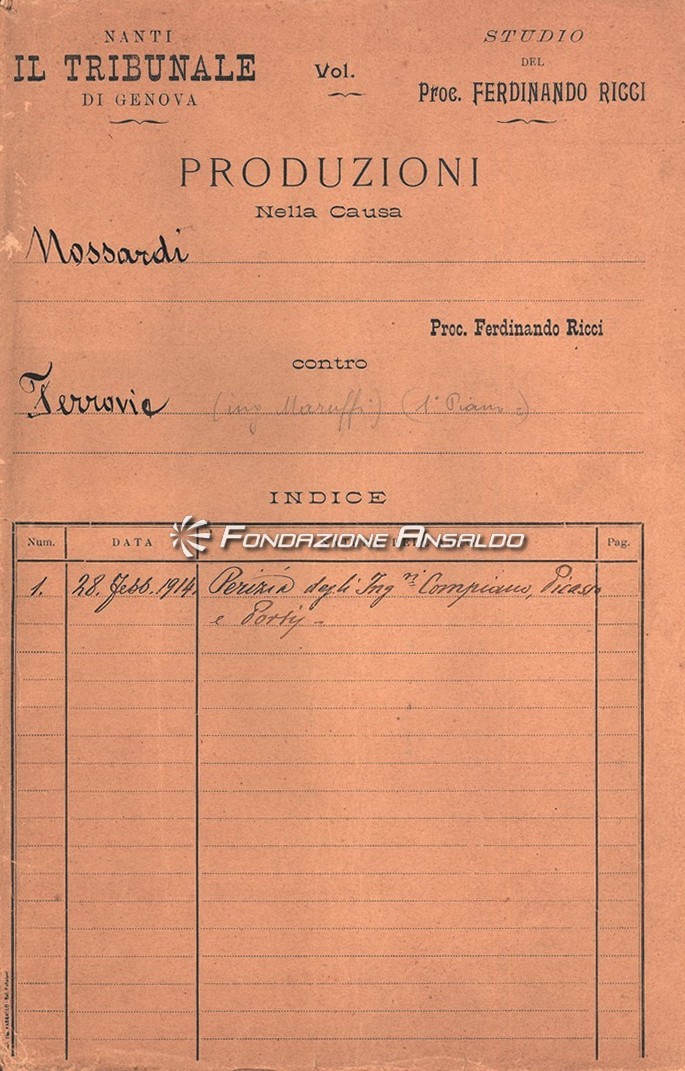 NANTI
IL TRIBUNALE
DI GENOVA
Vol.
STUDIO
DEL
Proc. FERDINANDO RICCI
PRODUZIONI
Nella Causa
Mossardi
Proc. Ferdinando Ricci
contro
Ferrovie (ing Maruffi) (1° Piano=)
INDICE
Num. DATA Pag.
FONDAZIONE ANSALDO
1. 28. Febb. 1914. Perizia degli Ing.ni Compiano, Picasso
e